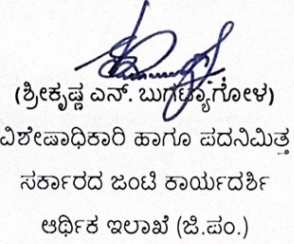 (ಶ್ರೀಕೃಷ್ಣ ಎನ್. ಬುಗಟ್ಯಾಗೋಳ)
ವಿಶೇಷಾಧಿಕಾರಿ ಹಾಗೂ ಪದನಿಮಿತ್ತ
ಸರ್ಕಾರದ ಜಂಟಿ ಕಾರ್ಯದರ್ಶಿ
ಆರ್ಥಿಕ ಇಲಾಖೆ (ಜಿ.ಪಂ.)